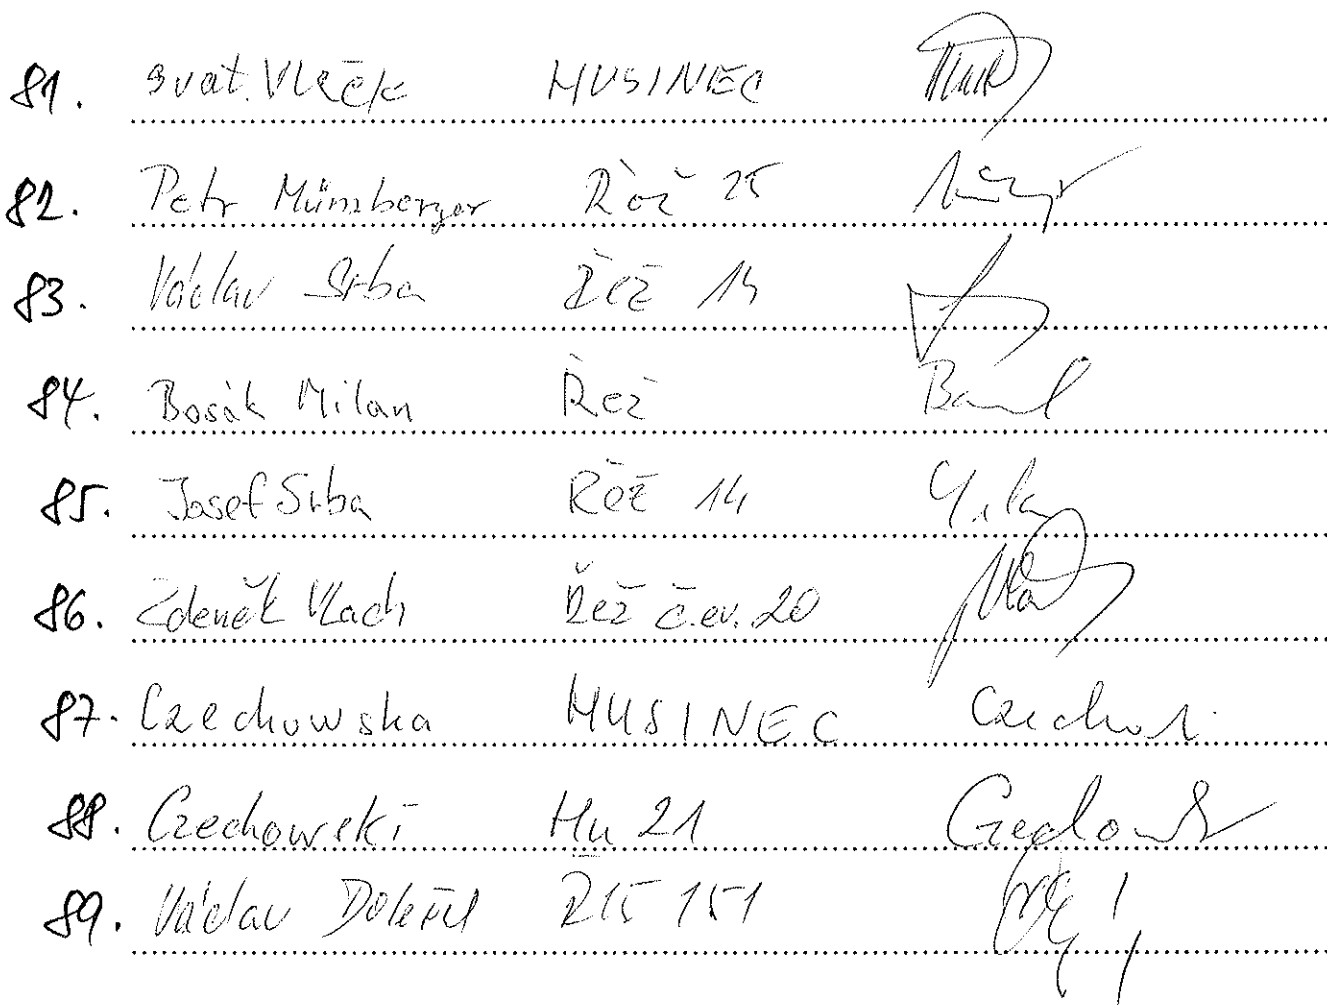 81. Svat. Vlček HUSINEC
82. Petr Münzberger Řež 25
83. Václav Srba Řež 14
84. Bosák Milan Řež
85. Josef Srba Řež 14
86. Zdeněk Vlach Řež č.ev. 20
87. Czechowska HUSINEC
88. Czechowski Hu 21
89. Václav Doležel 151